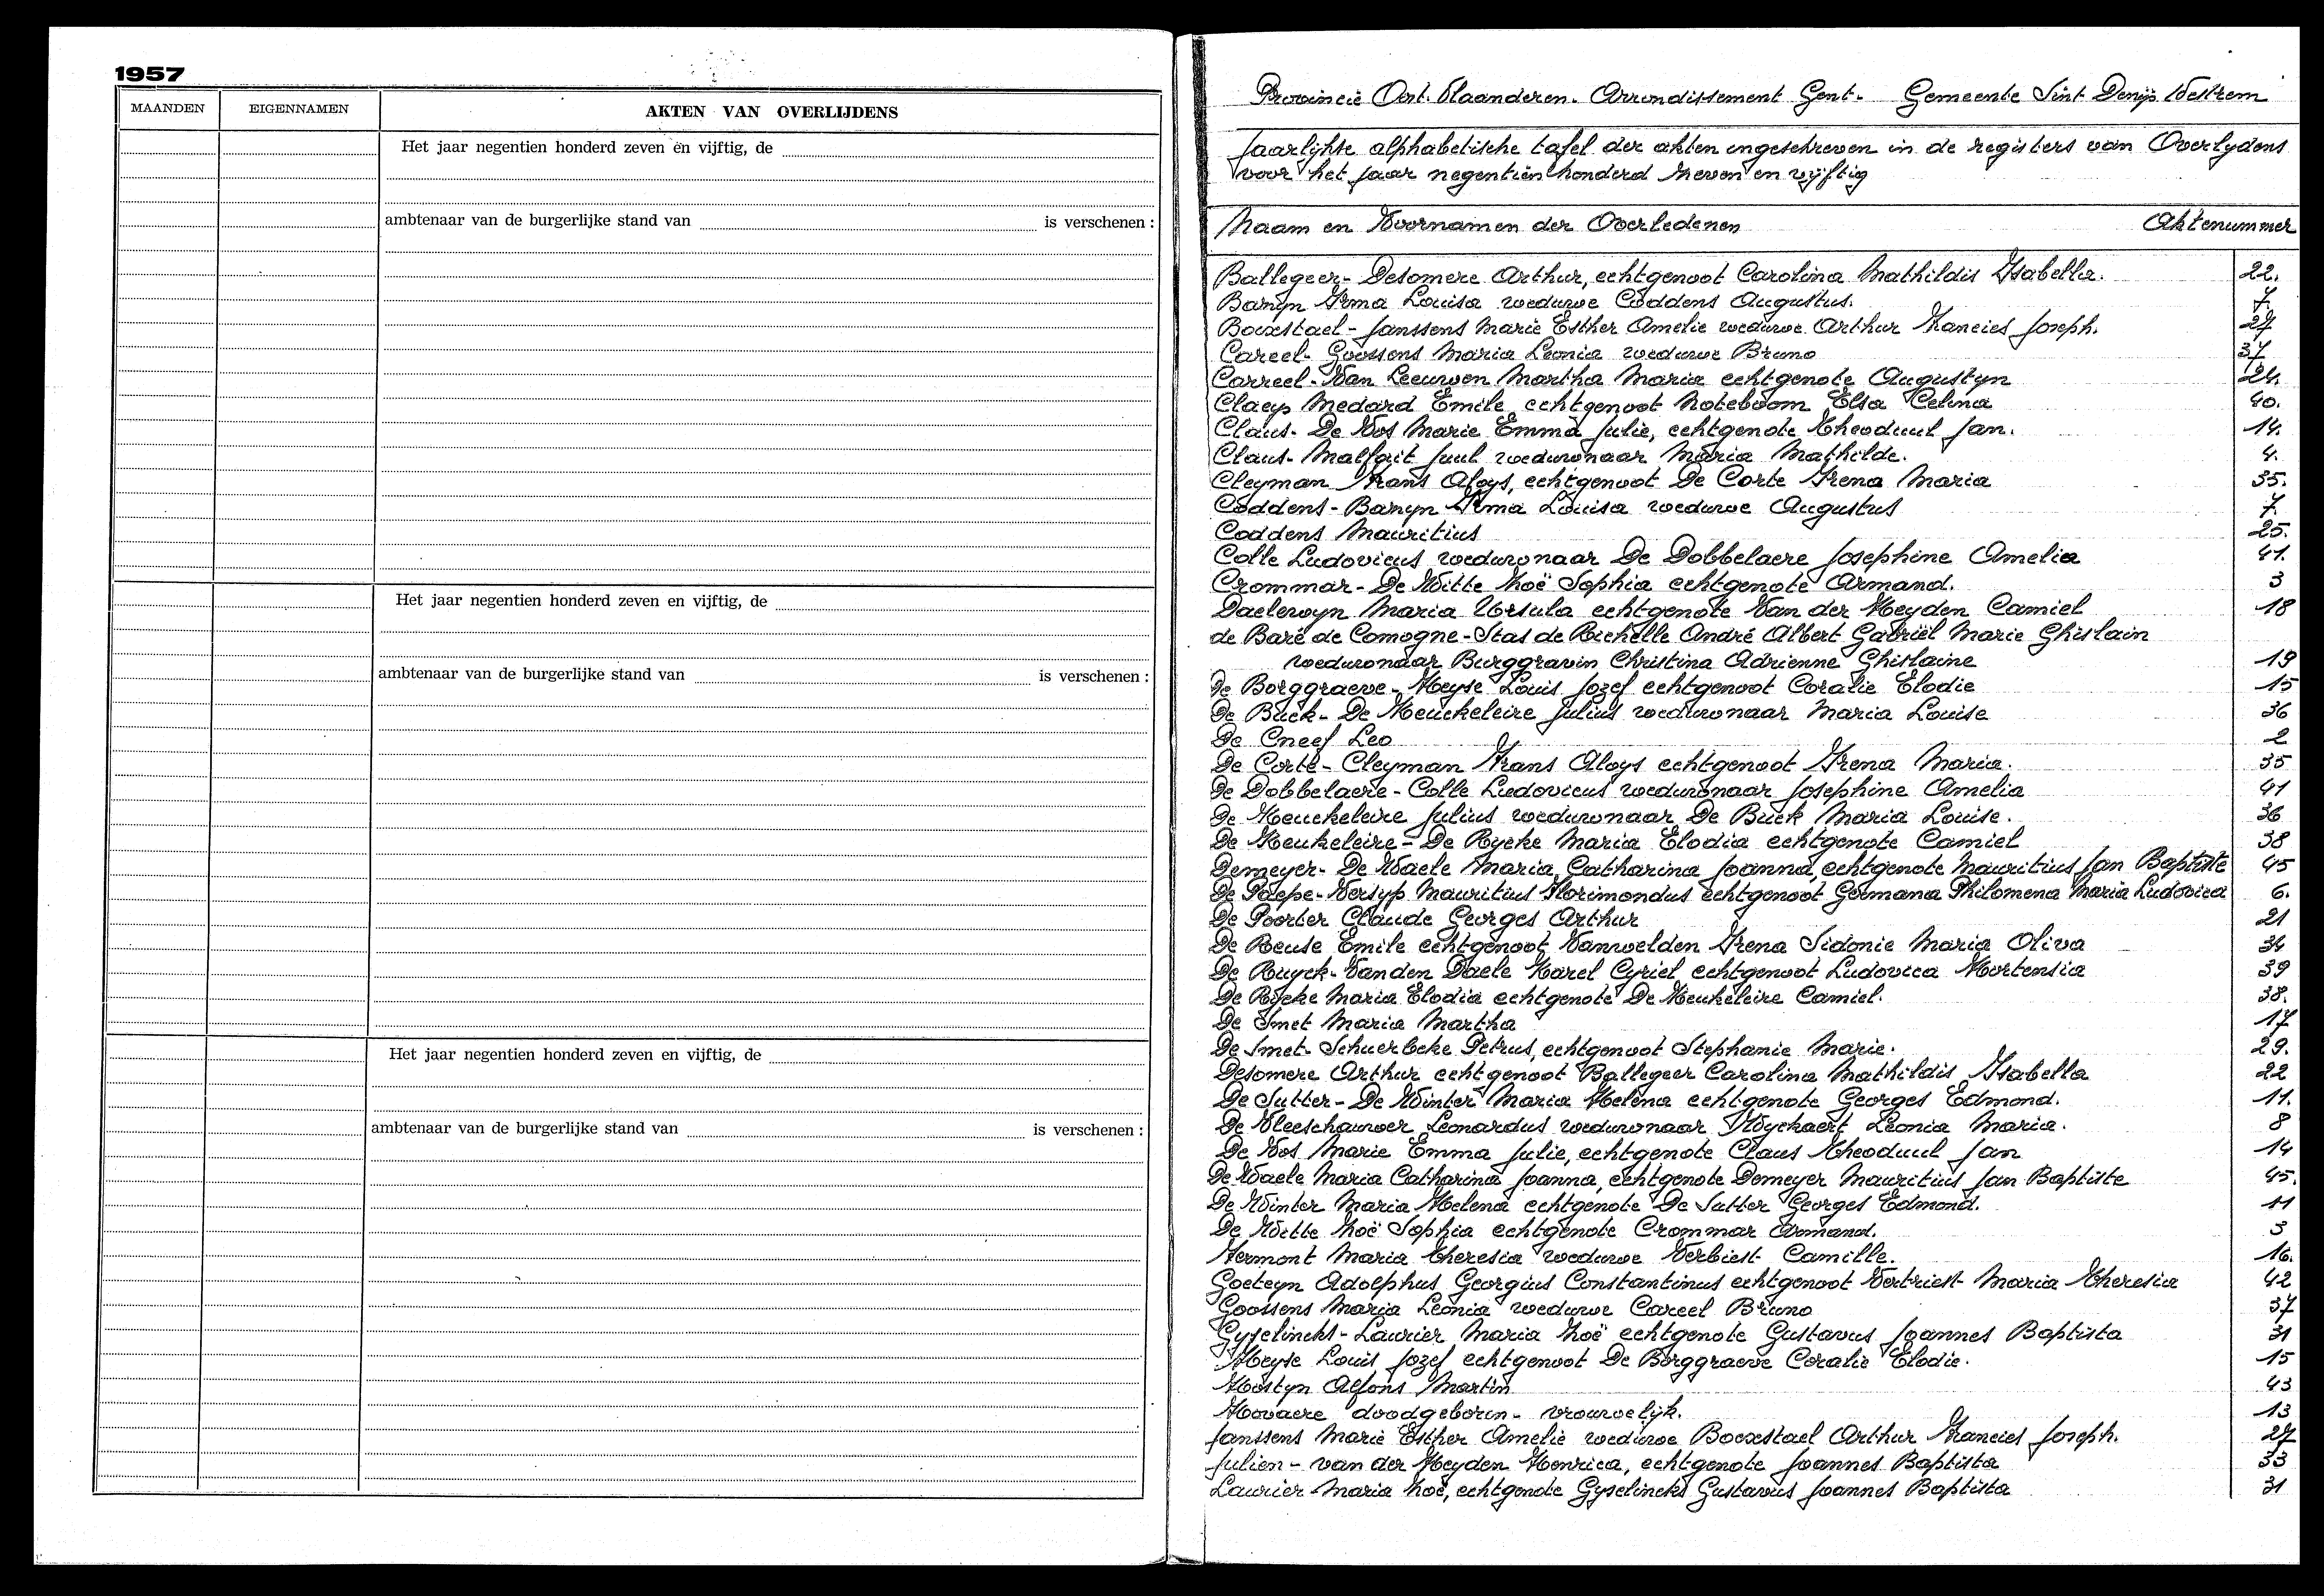 1957
MAANDEN EIGENNAMEN AKTEN VAN OVERLIJDENS
Het jaar negentien honderd zeven en vijftig, de
ambtenaar van de burgerlijke stand van is verschenen :
Het jaar negentien honderd zeven en vijftig, de
ambtenaar van de burgerlijke stand van is verschenen :
Het jaar negentien honderd zeven en vijftig, de
ambtenaar van de burgerlijke stand van is verschenen :
Provincie Oost. Vlaanderen. Arrondissement Gent. Gemeente Sint Denijs Westrem
Jaarlijkse alphabetische tafel der akten ingeschreven in de registers van Overlydens
voor het jaar negentien honderd zeven en vijftig
Naam en Voornamen der Overledenen Aktenummer
Ballegeer - Desomere Arthur, echtgenoot Carolina Mathildis Isabella. 22.
Baruyn Irma Louisa weduwe Coddens Augustus. 7.
Boexstael - Janssens Marie Esther Amelie weduwe Arthur Francies Joseph. 27
Careel - Goossens Maria Leonia weduwe Bruno 37
Carreel - Van Leeuwen Martha Maria echtgenote Augustyn 24.
Claeys Medard Emile echtgenoot Noteboom Elsa Celina 40.
Claus - De Vos Marie Emma Julie, echtgenote Theoduul Jan. 14.
Claus - Malfait Juul weduwnaar Maria Mathilde. 4.
Cleyman Frans Aloys, echtgenoot De Corte Irena Maria 35.
Coddens - Baruyn Irma Louisa weduwe Augustus 7.
Coddens Mauritius 25.
Colle Ludovicus weduwnaar De Dobbelaere Josephine Amelia 41.
Crommar - De Witte Zoë Sophia echtgenote Armand. 3
Daelewyn Maria Ursula echtgenote Van der Heyden Camiel 18
de Baré de Comogne - Stas de Richelle André Albert Gabriël Marie Ghislain
weduwnaar Burggravin Christina Adrienne Ghislaine 19
De Borggraeve - Heyse Louis Jozef echtgenoot Coralie Elodie 15
De Buck - De Heuckeleire Julius weduwnaar Maria Louise 36
De Cneef Leo 2
De Corte - Cleyman Frans Aloys echtgenoot Irena Maria. 35
De Dobbelaere - Colle Ludovicus weduwnaar Josephine Amelia 41
De Heuckeleire Julius weduwnaar De Buck Maria Louise. 36
De Heukeleire - De Rycke Maria Elodia echtgenote Camiel 38
Demeyer - De Waele Maria Catharina Joanna, echtgenote Mauritius Jan Baptiste 45
De Paepe - Versyp Mauritius Florimondus echtgenoot Germana Philomena Maria Ludovica 6.
De Poorter Claude Georges Arthur 21
De Reuse Emile echtgenoot Vanwelden Irena Sidonie Maria Oliva 34
De Ruyck - Van den Daele Karel Cyriel echtgenoot Ludovica Hortensia 39
De Rycke Maria Elodia echtgenote De Heukeleire Camiel. 38.
De Smet Maria Martha 17
De Smet - Schuerbeke Petrus, echtgenoot Stephanie Marie. 29.
Desomere Arthur echtgenoot Ballegeer Carolina Mathildis Isabella 22
De Sutter - De Winter Maria Helena echtgenote Georges Edmond. 11.
De Vleeschauwer Leonardus weduwnaar Wyckaert Leonia Maria. 8
De Vos Marie Emma Julie, echtgenote Claus Theoduul Jan 14
De Waele Maria Catharina Joanna, echtgenote Demeyer Mauritius Jan Baptiste 45.
De Winter Maria Helena echtgenote De Sutter Georges Edmond. 11
De Witte Zoë Sophia echtgenote Crommar Armand. 3
Fermont Maria Theresia weduwe Verbiest Camille. 16.
Goeteyn Adolphus Georgius Constantinus echtgenoot Vertriest Maria Theresia 42
Goossens Maria Leonia weduwe Careel Bruno 37
Gyselincks - Laurier Maria Zoë echtgenote Gustavus Joannes Baptista 31
Heyse Louis Jozef echtgenoot De Borggraeve Coralie Elodie. 15
Hostyn Alfons Martin 43
Hovaere doodgeboren - vrouwelijk. 13
Janssens Marie Esther Amelie weduwe Boexstael Arthur Francies Joseph. 27
Julien - van der Heyden Henrica, echtgenote Joannes Baptista 33
Laurier Maria Zoë, echtgenote Gyselincks Gustavus Joannes Baptista 31